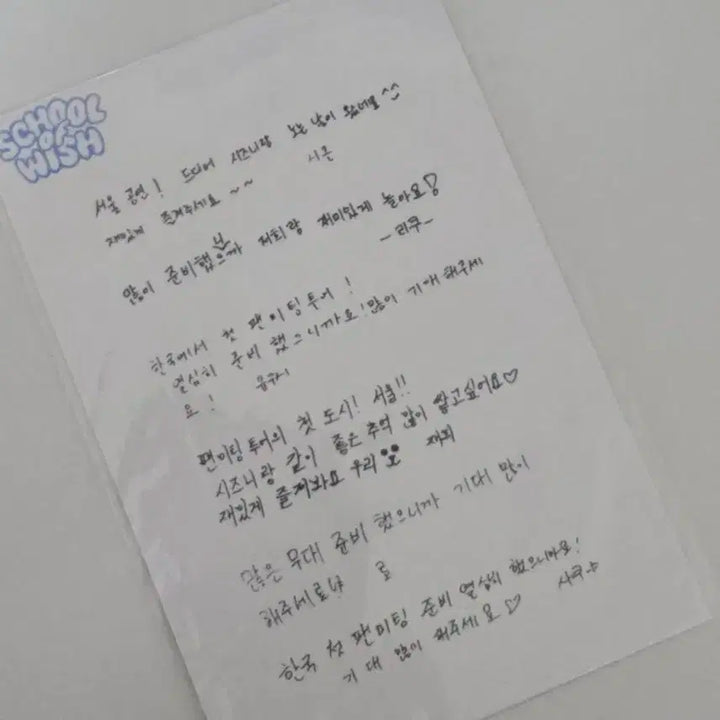 SCHOOL
OF
WISH
서울 공연! 드디어 시즈니랑 노는 날이 왔어요 ^^
재밌게 즐겨주세요 ~ ~ 시온
많이 준비했으니까 저희랑 재미있게 놀아요!
- 리쿠 -
한국에서 첫 팬미팅투어!
열심히 준비 했으니까요! 많이 기대 해주세
요! 유우시
팬미팅 투어의 첫 도시! 서울!!
시즈니랑 같이 좋은 추억 많이 쌓고싶어요♡
재밌게 즐겨봐요 우리 재희
많은 무대 준비 했으니까 기대 많이
해주세료
한국 첫 팬미팅 준비 열심히 했으니까요!
기대 많이 해주세요♡ 사쿠야